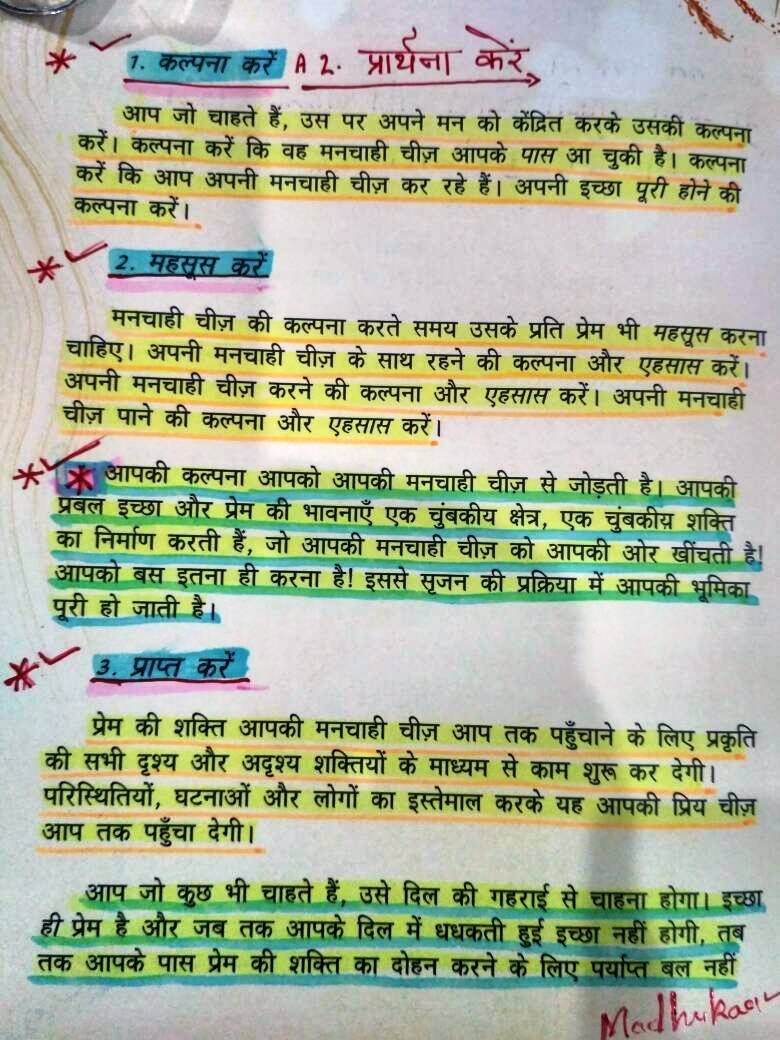 1. कल्पना करें A 2. प्रार्थना करें
आप जो चाहते हैं, उस पर अपने मन को केंद्रित करके उसकी कल्पना
करें। कल्पना करें कि वह मनचाही चीज़ आपके पास आ चुकी है। कल्पना
करें कि आप अपनी मनचाही चीज़ कर रहे हैं। अपनी इच्छा पूरी होने की
कल्पना करें।
2. महसूस करें
मनचाही चीज़ की कल्पना करते समय उसके प्रति प्रेम भी महसूस करना
चाहिए। अपनी मनचाही चीज़ के साथ रहने की कल्पना और एहसास करें।
अपनी मनचाही चीज़ करने की कल्पना और एहसास करें। अपनी मनचाही
चीज़ पाने की कल्पना और एहसास करें।
आपकी कल्पना आपको आपकी मनचाही चीज़ से जोड़ती है। आपकी
प्रबल इच्छा और प्रेम की भावनाएँ एक चुंबकीय क्षेत्र, एक चुंबकीय शक्ति
का निर्माण करती हैं, जो आपकी मनचाही चीज़ को आपकी ओर खींचती है!
आपको बस इतना ही करना है! इससे सृजन की प्रक्रिया में आपकी भूमिका
पूरी हो जाती है।
3. प्राप्त करें
प्रेम की शक्ति आपकी मनचाही चीज़ आप तक पहुँचाने के लिए प्रकृति
की सभी दृश्य और अदृश्य शक्तियों के माध्यम से काम शुरू कर देगी।
परिस्थितियों, घटनाओं और लोगों का इस्तेमाल करके यह आपकी प्रिय चीज़
आप तक पहुँचा देगी।
आप जो कुछ भी चाहते हैं, उसे दिल की गहराई से चाहना होगा। इच्छा
ही प्रेम है और जब तक आपके दिल में धधकती हुई इच्छा नहीं होगी, तब
तक आपके पास प्रेम की शक्ति का दोहन करने के लिए पर्याप्त बल नहीं
Madhukar